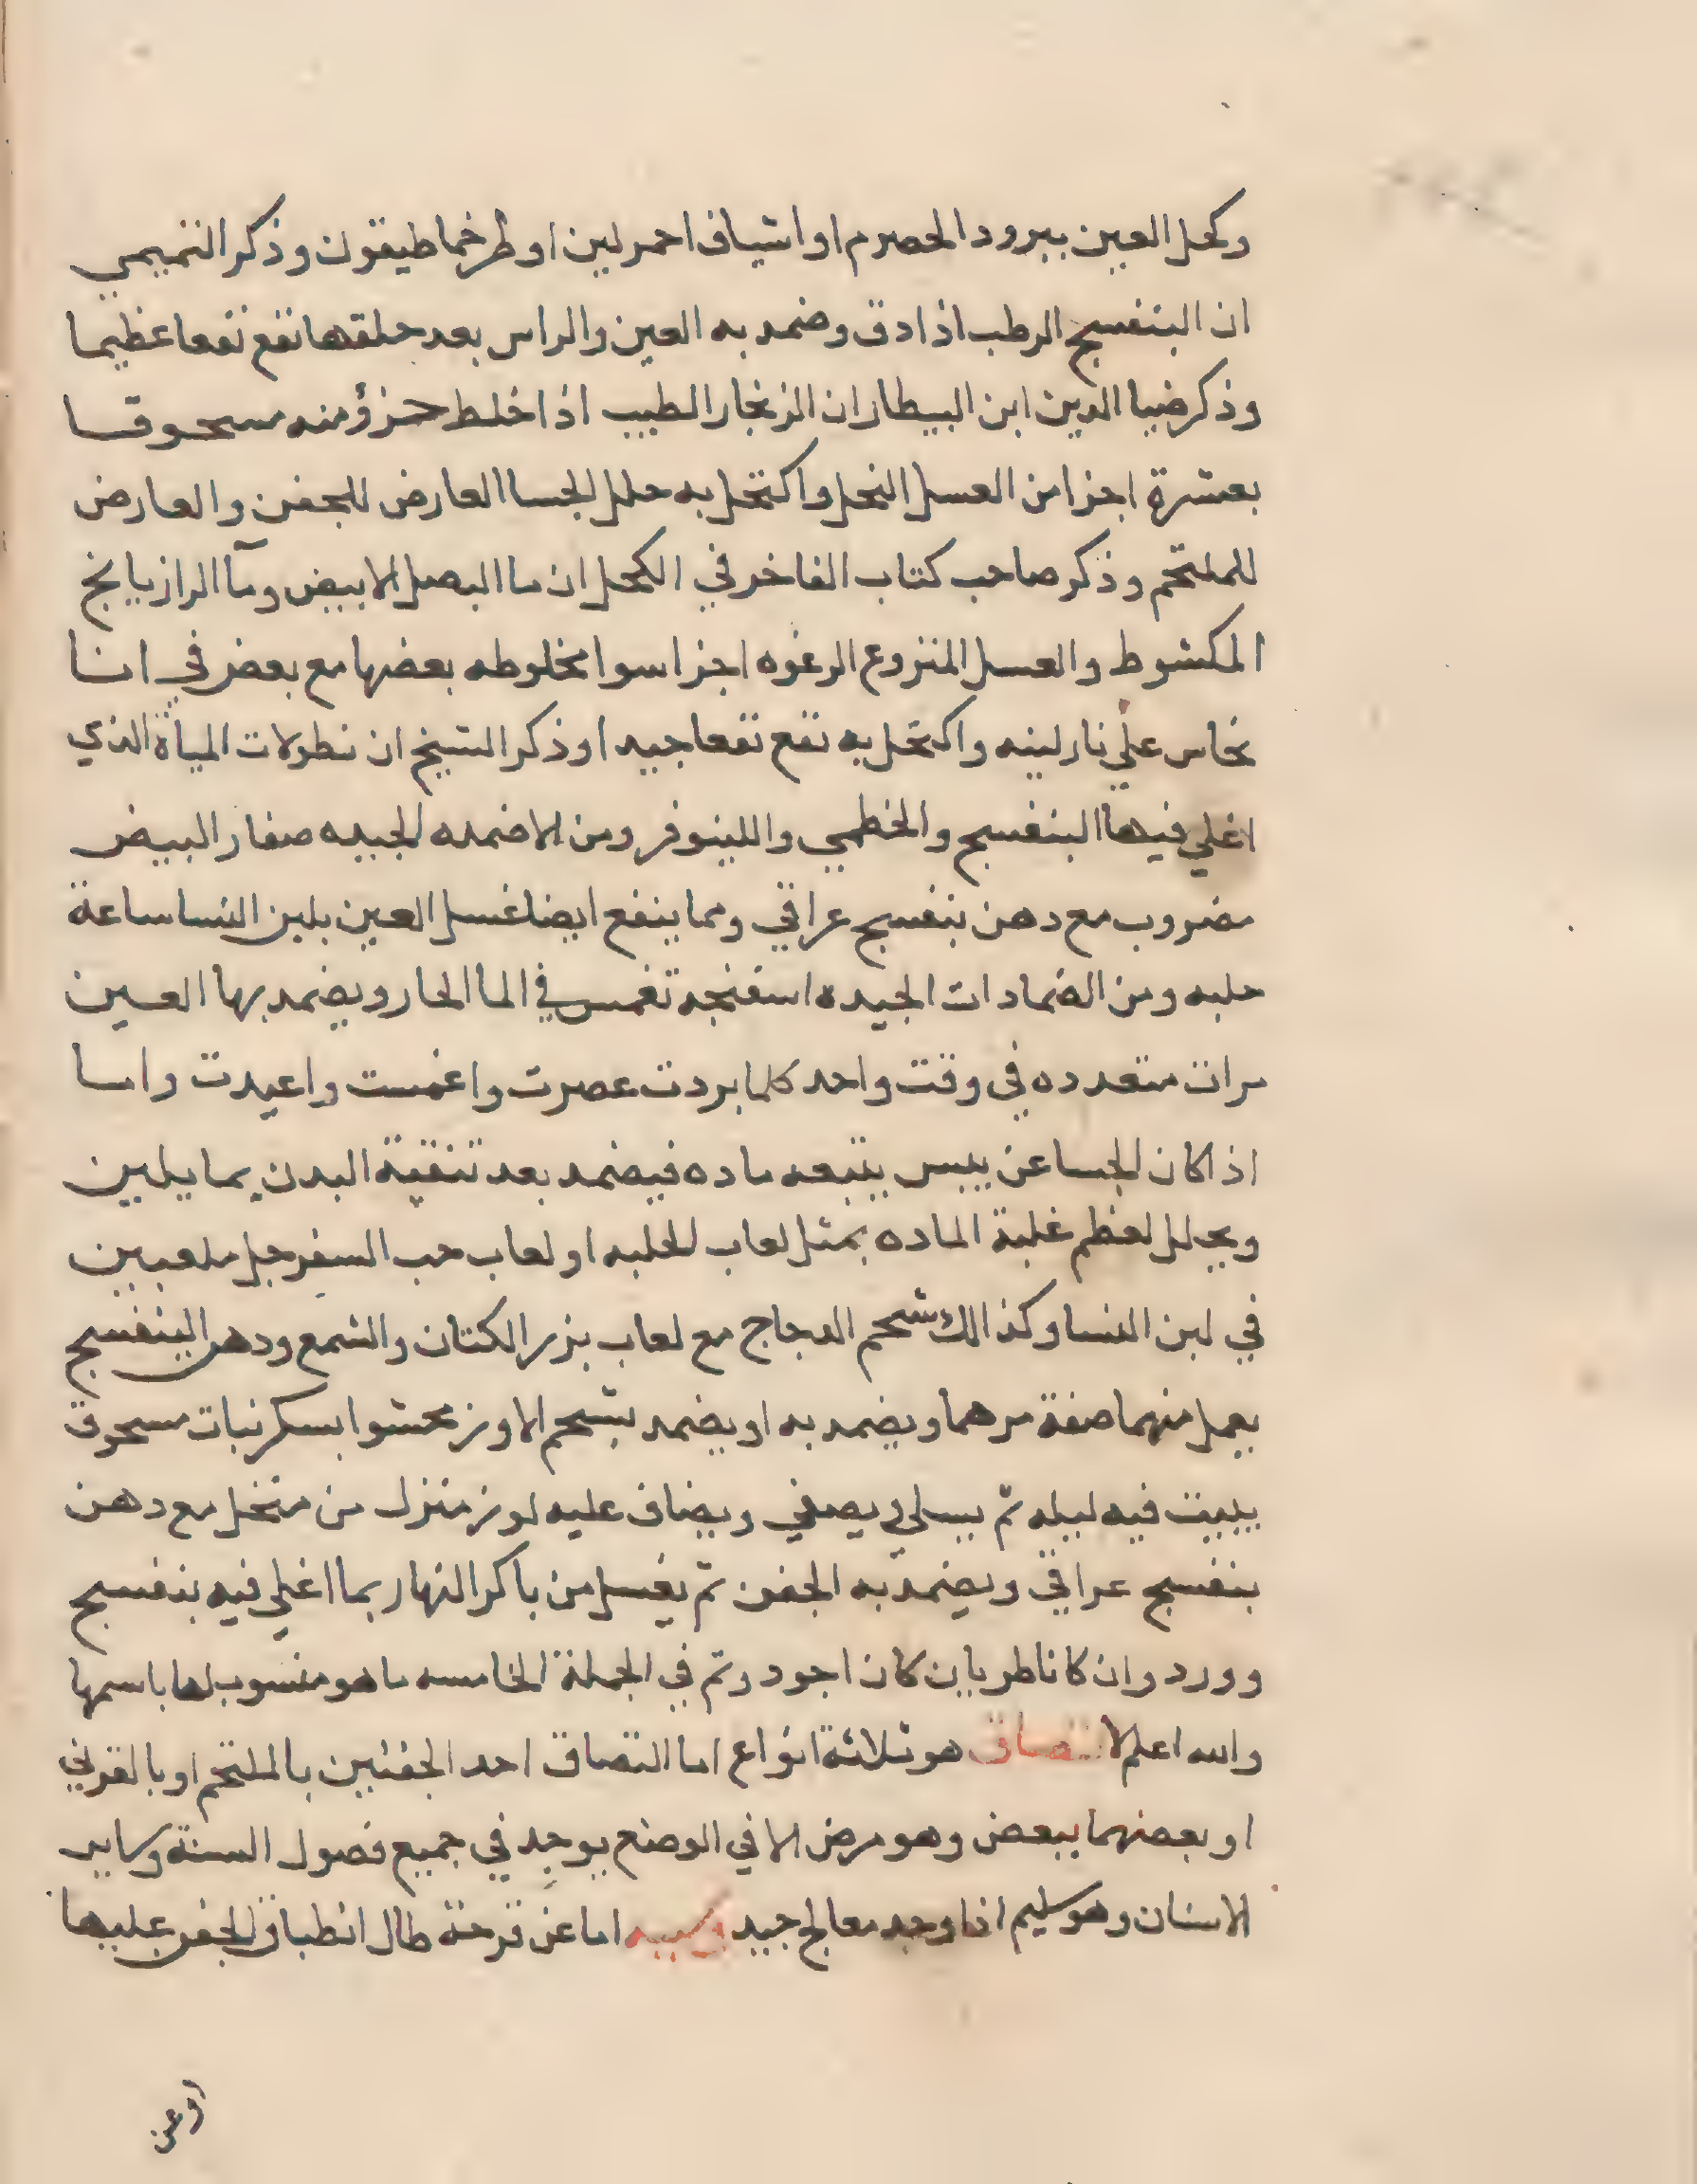 وكحل العين ببرود الحصرم او اشياف احمر لين او طرخما طيقون وذكر التميمي
ان البنفسج الرطب اذا دق وضمد به العين والراس بعد حلقها نفع نفعا عظيما
وذكر ضيا الدين ابن البيطار ان الزنجار الطيب اذا خلط جزؤ منه مسحوقا
بعشرة اجزا من العسل النحل واكتحل به حلل الجسا العارض للجفن والعارض
للملتحم وذكر صاحب كتاب الفاخر في الكحل ان ما البصل الابيض ومآ الرازيانج
المكشوط والعسل المنزوع الرغوه اجزا سوا مخلوطه بعضها مع بعض في انا
نحاس علي نار لينه واكتحل به نفع نفعا جيدا وذكر الشيخ ان نطولات المياة الذي
اغلي فيها البنفسج والخطمي واللينوفر ومن الاضمده الجيده صفار البيض
مضروب مع دهن بنفسج عراقي ومما ينفع ايضا غسل العين بلبن النسا ساعة
حلبه ومن الضمادات الجيده اسفنجه تغمس في الما الحار ويضمد بها العين
مرات متعدده في وقت واحد كلما بردت عصرت واغمست واعيدت واما
اذا كان الجسا عن يبس يتبعه ماده فيضمد بعد تنقية البدن بما يلين
ويحلل لعظم غلبة الماده بمثل لعاب الحلبه او لعاب حب السفرجل ملعبين
في لبن النسا وكذالك شحم الدجاج مع لعاب بزر الكتان والشمع ودهن البنفسج
يعمل منهما صفة مرهما ويضمد به او يضمد بشحم الاوز محشوا بسكر نبات مسحوق
يبيت فيه ليله ثم يسلي ويصفي ويضاف عليه لوز منزل من منخل مع دهن
بنفسج عراقي ويضمد به الجفن ثم يغسل من باكر النهار بما اغلي فيه بنفسج
وورد وان كانا طريان كان اجود وتم في الجملة الخامسه ما هو منسوب لها باسمها
والله اعلم الالتصاق هو ثلاثة انواع اما التصاق احد الجفنين بالملتحم او بالقرني
او بعضهما ببعض وهو مرض الا في الوضع يوجد في جميع فصول السنة وساير
الاسنان وهو سليم اذا وجد معالج جيد وسببه اما عن قرحة طال انطباق الجفن عليها
او عن